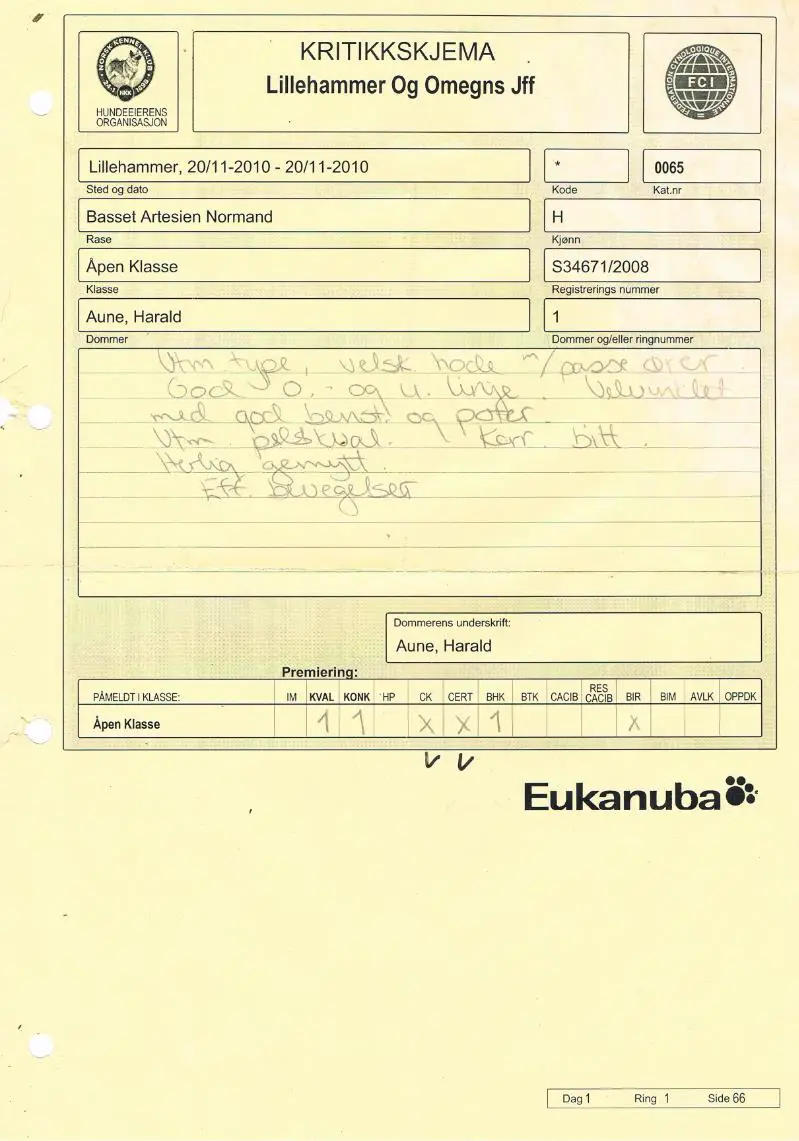 NORSK KENNEL KLUB
24-1 NKK 1898
HUNDEEIERENS
ORGANISASJON
KRITIKKSKJEMA
Lillehammer Og Omegns Jff
FEDERATION CYNOLOGIQUE INTERNATIONALE
FCI
Lillehammer, 20/11-2010 - 20/11-2010
*
0065
Sted og dato
Kode
Kat.nr
Basset Artesien Normand
H
Rase
Kjønn
Åpen Klasse
S34671/2008
Klasse
Registrerings nummer
Aune, Harald
1
Dommer
Dommer og/eller ringnummer
Utm type, velsk. hode m/passe ører.
God O.- og u. linje. Velvinklet
med god benst. og poter.
Utm. pelskval. Korr. bitt.
Herlig gemytt.
Eff. bevegelser
Dommerens underskrift:
Aune, Harald
Premiering:
PÅMELDT I KLASSE: IM KVAL KONK HP CK CERT BHK BTK CACIB RES CACIB BIR BIM AVLK OPPDK
Åpen Klasse 1 1 X X 1 X
Eukanuba
Dag 1 Ring 1 Side 66